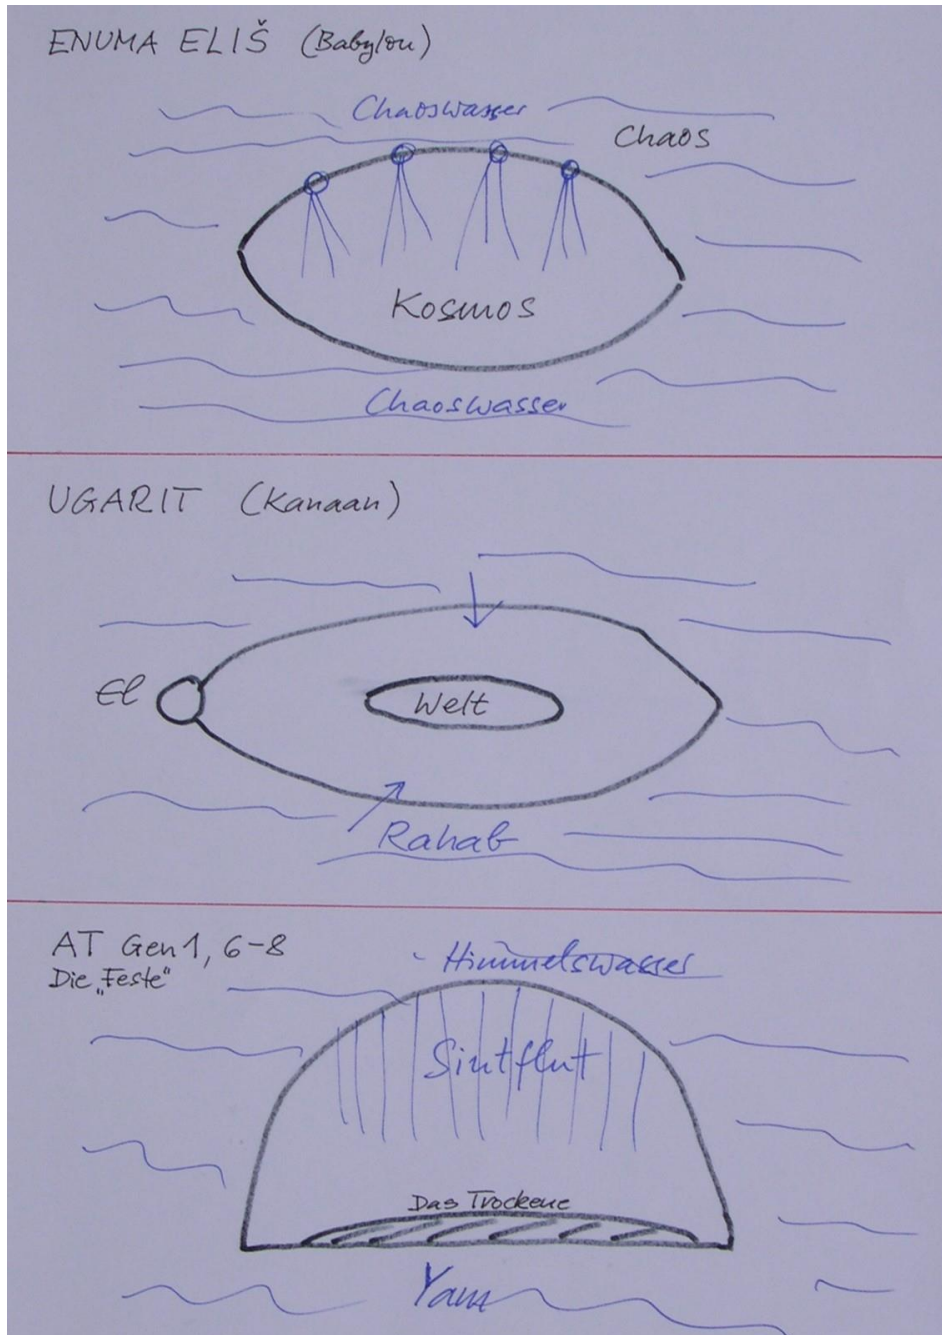 ENUMA ELIŠ (Babylon)
Chaoswasser
Chaos
Kosmos
Chaoswasser
UGARIT (Kanaan)
El
Welt
Rahab
AT Gen 1, 6-8
Die „Feste“
Himmelswasser
Sintflut
Das Trockene
Yam